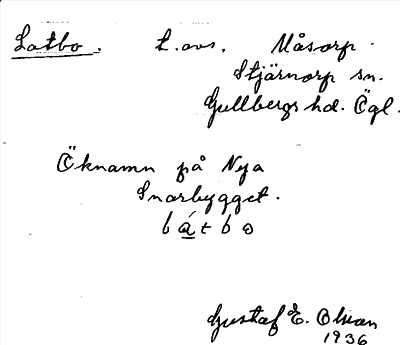 Latbo. t. avs. Måsorp.
Stjärnorp sn.
Gullbergs hd. Ögl.
Öknamn på Nya
Snarbygget.
Gustaf E. Olsson
1936